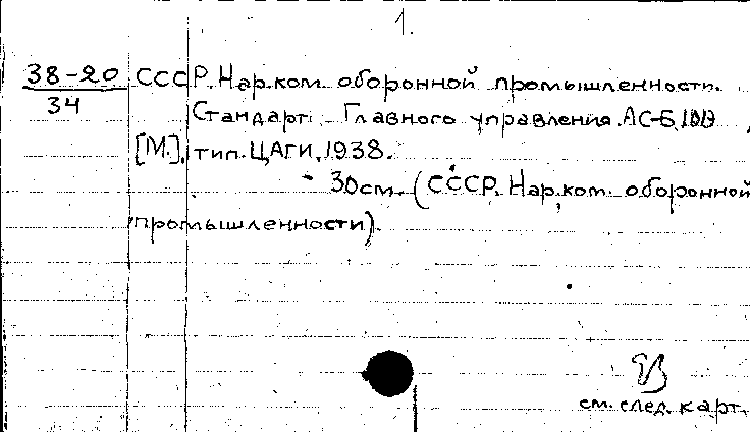 1.
38-20 СССР. Нар.ком. оборонной промышленности.
34
Стандарт Главного управления. АС-Б,
[М.], тип. ЦАГИ, 1938.
- 30см. (СССР. Нар.ком. оборонной
промышленности).
см. след. карт.